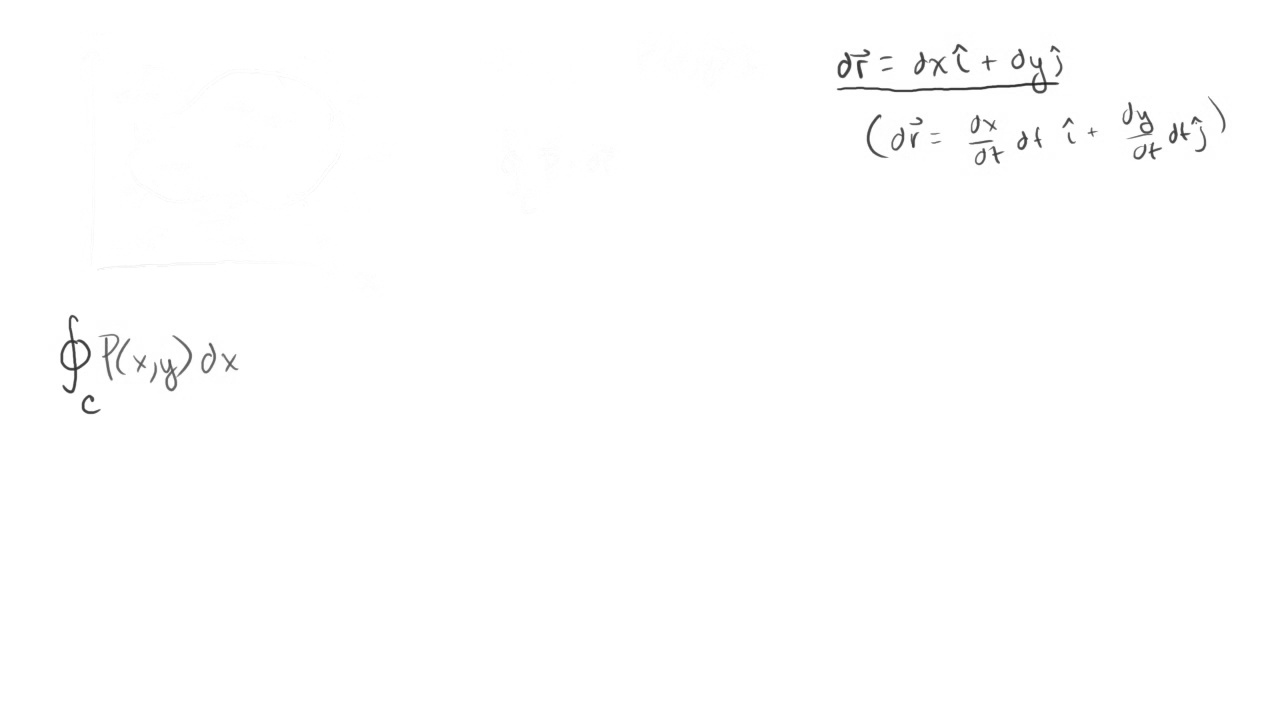 d\vec{r} = dx î + dy ĵ
(d\vec{r} = \frac{dx}{dt} dt î + \frac{dy}{dt} dt ĵ)
∮_C P(x,y) dx